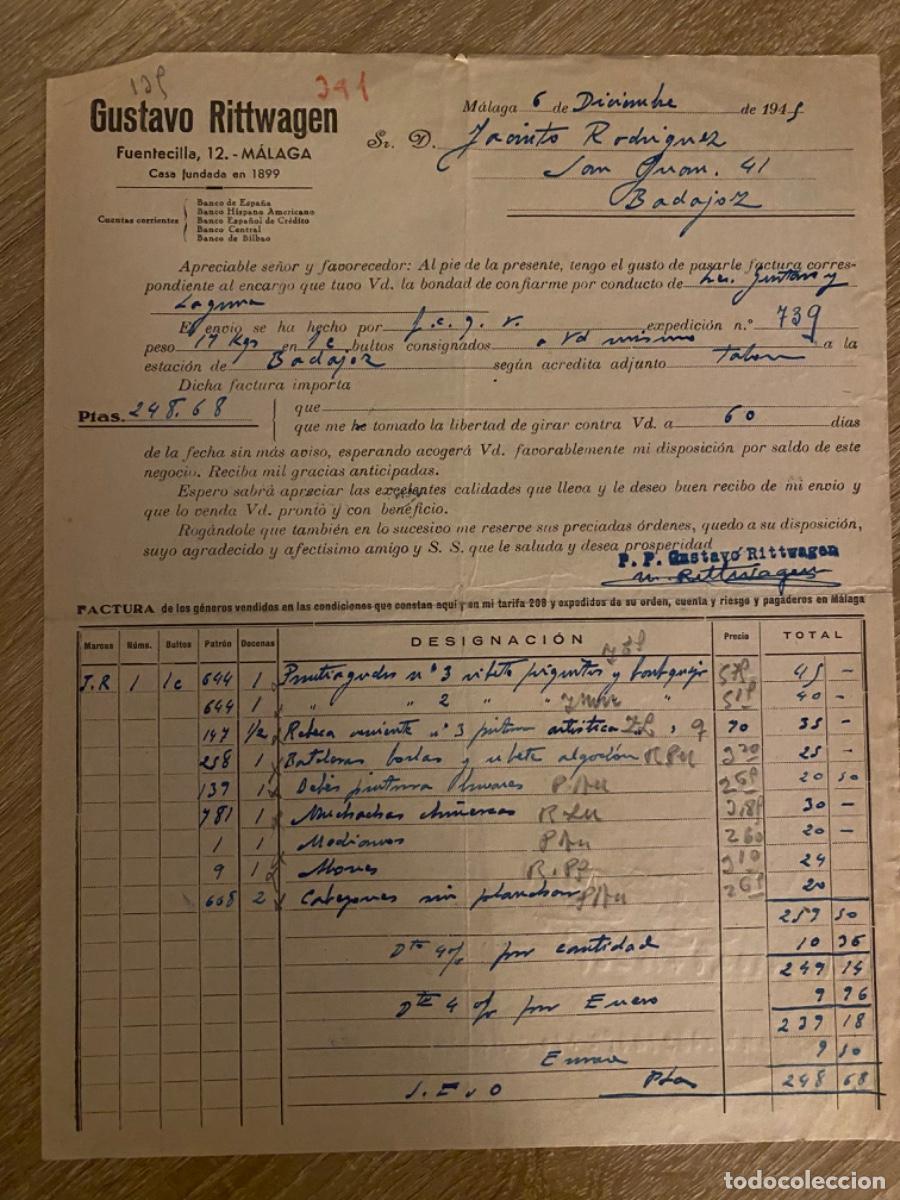 139 391
Gustavo Rittwagen
Fuentecilla, 12. - MÁLAGA
Casa fundada en 1899
Cuentas corrientes
Banco de España
Banco Hispano Americano
Banco Español de Crédito
Banco Central
Banco de Bilbao
Málaga 6 de Diciembre de 1945
Sr. D. Jacinto Rodriguez
San Juan. 41
Badajoz
Apreciable señor y favorecedor: Al pie de la presente, tengo el gusto de pasarle factura corres-
pondiente al encargo que tuvo Vd. la bondad de confiarme por conducto de
Laguna
El envío se ha hecho por f.c.g.v. expedición n.º 739
peso 17 Kgs en 1c bultos consignados a Vd mismo a la
estación de Badajoz según acredita adjunto Talon
Dicha factura importa
Ptas. 248.68
que
que me he tomado la libertad de girar contra Vd. a 60 días
de la fecha sin más aviso, esperando acogerá Vd. favorablemente mi disposición por saldo de este
negocio. Reciba mil gracias anticipadas.
Espero sabrá apreciar las excelentes calidades que lleva y le deseo buen recibo de mi envío y
que lo venda Vd. pronto y con beneficio.
Rogándole que también en lo sucesivo me reserve sus preciadas órdenes, quedo a su disposición,
suyo agradecido y afectísimo amigo y S. S. que le saluda y desea prosperidad
P. P. Gustavo Rittwagen
Rittwagen
FACTURA de los géneros vendidos en las condiciones que constan aquí y en mi tarifa 208 y expedidos de su orden, cuenta y riesgo y pagaderos en Málaga
Marcas Núms. Bultos Patrón Docenas DESIGNACIÓN Precio TOTAL
J.R 1 1c 644 1 nº 3 y 45 -
644 1 " " 2 " " 40 -
147 1/2 nº 3 pintura artistica 70 35 -
258 1 borlas y algodón 25 -
139 1 Bebés pintura 20 50
781 1 Muchachas chinescas 30 -
1 1 20 -
9 1 Monos 24
668 2 sin 20
259 50
Dto 4% por cantidad 10 36
249 14
Dto 4 % por Enero 9 96
239 18
9 50
S.E.u O Ptas 248 68
todocoleccion